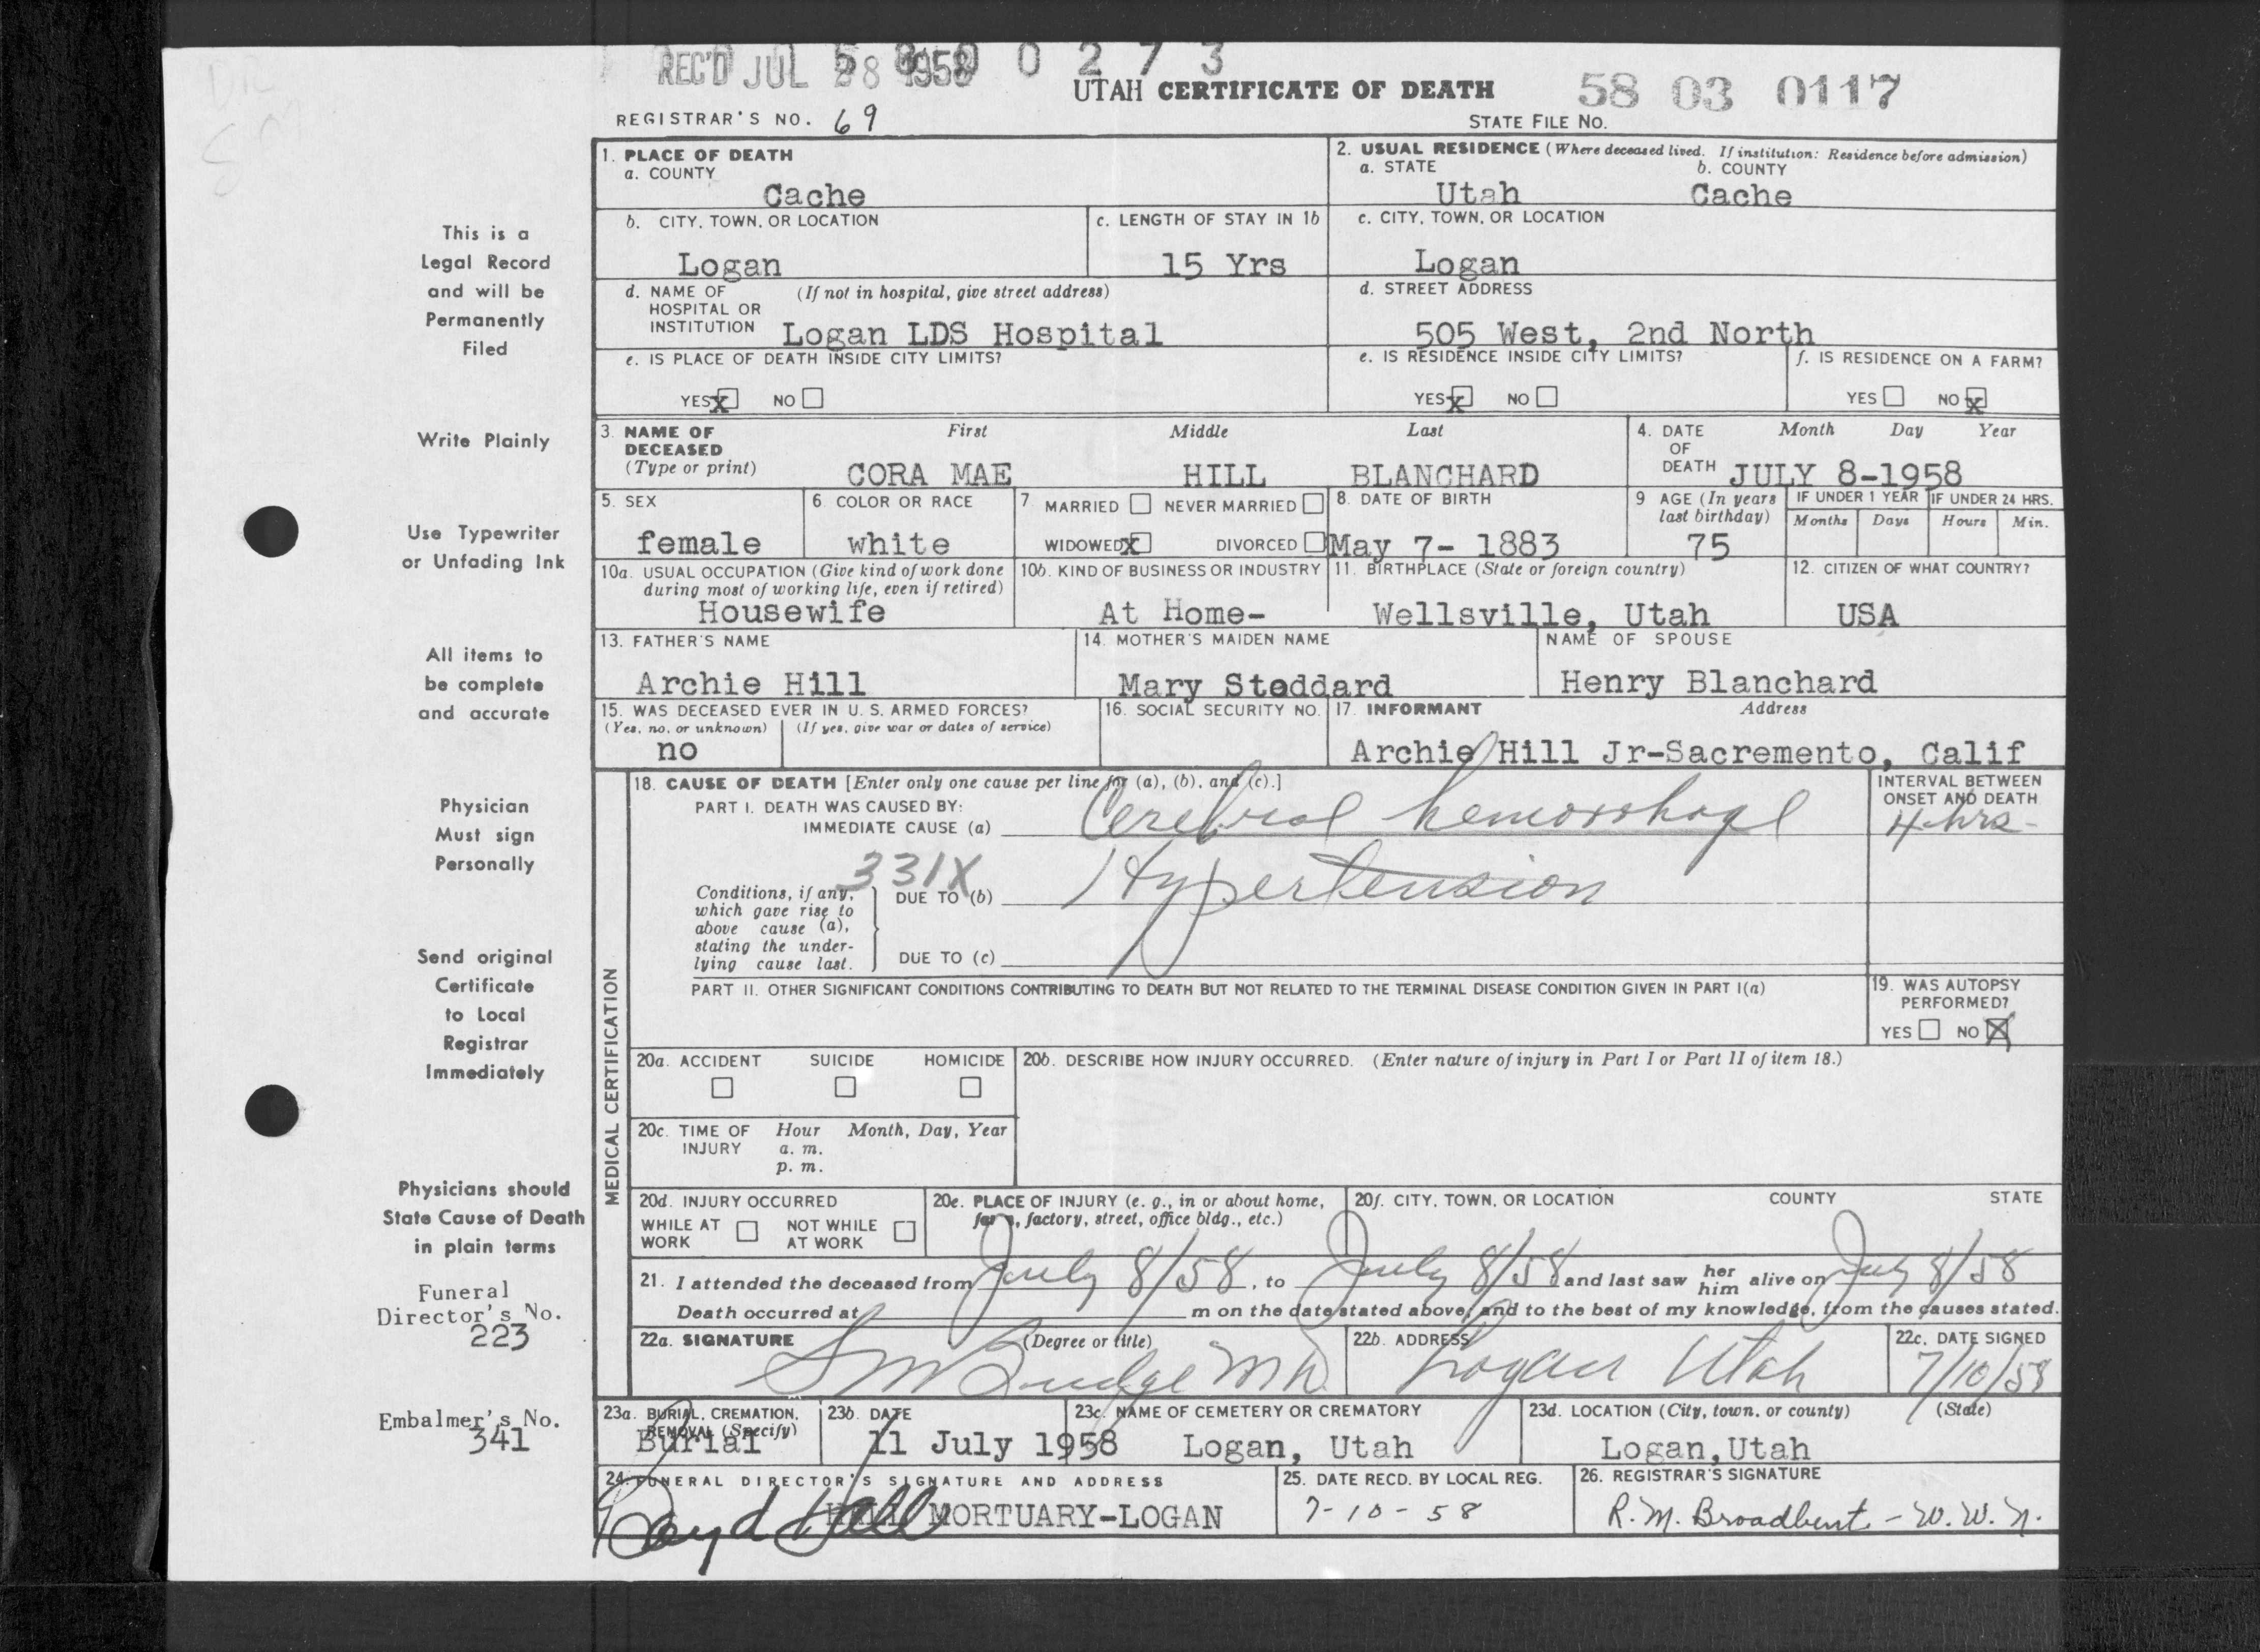 REC'D JUL 28 1958
5800273
UTAH CERTIFICATE OF DEATH
58 03 0117
REGISTRAR'S NO. 69
STATE FILE NO.
This is a
Legal Record
and will be
Permanently
Filed
Write Plainly
Use Typewriter
or Unfading Ink
All items to
be complete
and accurate
Physician
Must sign
Personally
Send original
Certificate
to Local
Registrar
Immediately
Physicians should
State Cause of Death
in plain terms
Funeral
Director's No.
223
Embalmer's No.
341
1. PLACE OF DEATH
a. COUNTY
Cache
2. USUAL RESIDENCE (Where deceased lived. If institution: Residence before admission)
a. STATE b. COUNTY
Utah Cache
b. CITY, TOWN, OR LOCATION
Logan
c. LENGTH OF STAY IN 1b
15 Yrs
c. CITY, TOWN, OR LOCATION
Logan
d. NAME OF (If not in hospital, give street address)
HOSPITAL OR
INSTITUTION Logan LDS Hospital
d. STREET ADDRESS
505 West, 2nd North
e. IS PLACE OF DEATH INSIDE CITY LIMITS?
YES X NO
e. IS RESIDENCE INSIDE CITY LIMITS?
YES X NO
f. IS RESIDENCE ON A FARM?
YES NO X
3. NAME OF DECEASED (Type or print)
First Middle Last
CORA MAE HILL BLANCHARD
4. DATE OF DEATH
Month Day Year
JULY 8-1958
5. SEX
female
6. COLOR OR RACE
white
7 MARRIED NEVER MARRIED
WIDOWED X DIVORCED
8. DATE OF BIRTH
May 7- 1883
9 AGE (In years last birthday)
75
IF UNDER 1 YEAR IF UNDER 24 HRS.
Months Days Hours Min.
10a. USUAL OCCUPATION (Give kind of work done
during most of working life, even if retired)
Housewife
10b. KIND OF BUSINESS OR INDUSTRY
At Home-
11. BIRTHPLACE (State or foreign country)
Wellsville, Utah
12. CITIZEN OF WHAT COUNTRY?
USA
13. FATHER'S NAME
Archie Hill
14. MOTHER'S MAIDEN NAME
Mary Stoddard
NAME OF SPOUSE
Henry Blanchard
15. WAS DECEASED EVER IN U. S. ARMED FORCES?
(Yes, no, or unknown) (If yes, give war or dates of service)
no
16. SOCIAL SECURITY NO.
17. INFORMANT Address
Archie Hill Jr-Sacremento, Calif
MEDICAL CERTIFICATION
18. CAUSE OF DEATH [Enter only one cause per line for (a), (b), and (c).]
PART I. DEATH WAS CAUSED BY:
IMMEDIATE CAUSE (a) Cerebral hemorrhage
INTERVAL BETWEEN
ONSET AND DEATH
4 hrs-
331X
Conditions, if any,
which gave rise to
above cause (a),
stating the under-
lying cause last.
DUE TO (b) Hypertension
DUE TO (c)
PART II. OTHER SIGNIFICANT CONDITIONS CONTRIBUTING TO DEATH BUT NOT RELATED TO THE TERMINAL DISEASE CONDITION GIVEN IN PART I(a)
19. WAS AUTOPSY
PERFORMED?
YES NO X
20a. ACCIDENT SUICIDE HOMICIDE
20b. DESCRIBE HOW INJURY OCCURRED. (Enter nature of injury in Part I or Part II of item 18.)
20c. TIME OF INJURY
Hour Month, Day, Year
a. m.
p. m.
20d. INJURY OCCURRED
WHILE AT WORK NOT WHILE AT WORK
20e. PLACE OF INJURY (e. g., in or about home,
farm, factory, street, office bldg., etc.)
20f. CITY, TOWN, OR LOCATION COUNTY STATE
21. I attended the deceased from July 8/58, to July 8/58 and last saw her him alive on July 8/58
Death occurred at m on the date stated above, and to the best of my knowledge, from the causes stated.
22a. SIGNATURE (Degree or title)
S M Budge M D
22b. ADDRESS
Logan Utah
22c. DATE SIGNED
7/10/58
23a. BURIAL, CREMATION,
REMOVAL (Specify)
Burial
23b. DATE
11 July 1958
23c. NAME OF CEMETERY OR CREMATORY
Logan, Utah
23d. LOCATION (City, town, or county) (State)
Logan, Utah
24. FUNERAL DIRECTOR'S SIGNATURE AND ADDRESS
Boyd Hall
HALL MORTUARY-LOGAN
25. DATE RECD. BY LOCAL REG.
7-10-58
26. REGISTRAR'S SIGNATURE
R. M. Broadbent - W. W. N.